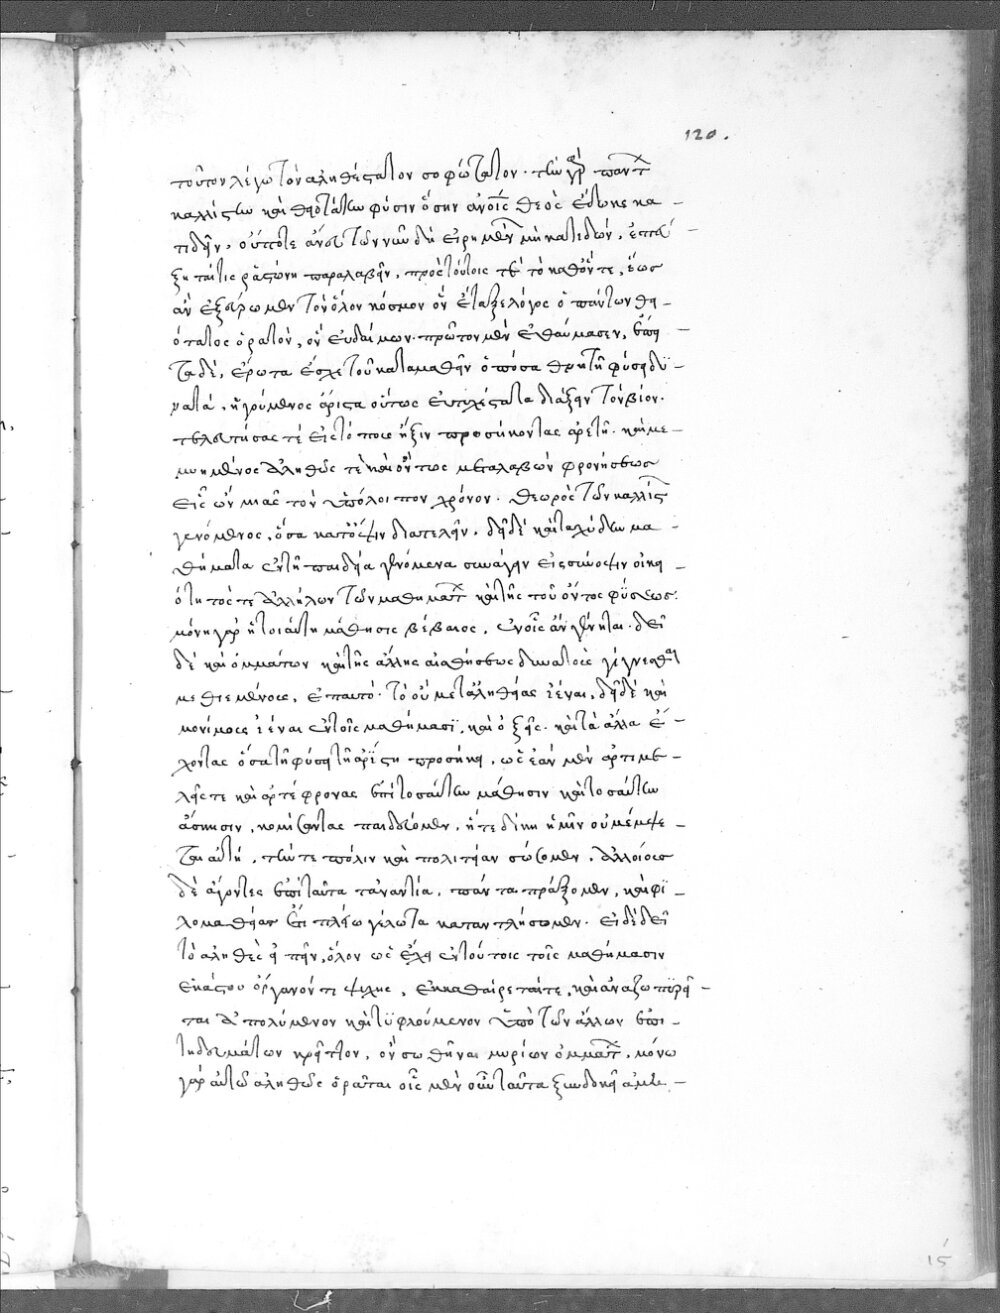 120.
τοῦτον λέγω τὸν ἀληθέστατον σοφώτατον. τὴν γὰρ πάντων
καλλίστην καὶ θειοτάτην φύσιν ὅσην ἀνοῖς θεὸς ἔδωκε κα-
τιδεῖν, οὔποτε ἄνευ τῶν νῦν δὴ εἰρημένων μὴ κατιδών, ἐπεί-
ξη ταύτις ῥαστώνη παραλαβεῖν. πρὸς τούτοις τὲ τὸ καθόντε, ἕως
ἂν ἐξεύρωμεν τὸν ὅλον κόσμον ὃν ἔταξε λόγος ὁ πάντων θει-
ότατος ὁρατὸν, ὃν εὐδαίμων. πρῶτον μὲν ἐθαύμασεν, ἔπει
τα δὲ, ἔρωτα ἔσχε τοῦ καταμαθεῖν ὁπόσα θνητῇ φύσει δυ-
νατά, ἡγούμενος ἄριστα οὕτως εὐτυχέστατα διάξειν τὸν βίον.
τελευτήσας τέ εἰς τόπους ἥξειν προσήκοντας ἀρετῇ. καὶ με-
μυημένος ἀληθῶς τὲ καὶ ὄντως μεταλαβὼν φρονήσεως
εἷς ὢν μιᾶς τὸν ὑπόλοιπον χρόνον. θεωρὸς τῶν καλλίστων
γενόμενος, ὅσα κατ' ὄψιν διατελεῖν. δεῖ δὲ καὶ τὰ χύδην μα-
θήματα ἐν τῇ παιδείᾳ γενόμενα συνάγειν εἰς σύνοψιν οἰκει-
ότητός τε ἀλλήλων τῶν μαθημάτων καὶ τῆς τοῦ ὄντος φύσεως.
μόνη γὰρ ἡ τοιαύτη μάθησις βέβαιος, ἐν οἷς ἂν γένηται. δεῖ
δὲ καὶ ὀμμάτων καὶ τῆς ἄλλης αἰσθήσεως δυνατοὺς γίγνεσθαι
μεθιεμένους, ἐπαυτὸ. τὸ οὐ μετ' ἀληθείας ἰέναι, δεῖ δὲ καὶ
μονίμους ἰέναι ἐν τοῖς μαθήμασϊ, καὶ ὀξεῖς. καὶ τὰ ἄλλα ἔ-
χοντας ὅσα τῇ φύσει τῇ ἀρίστῃ προσήκει, ὡς ἐὰν μὲν ἀρτιμε-
λεῖς τε καὶ ἀρτίφρονας ἐπὶ τοσαύτην μάθησιν καὶ τοσαύτην
ἄσκησιν, κομίζοντας παιδεύωμεν, ἥτε δίκη ἡμῖν οὐ μέμψε-
ται αὐτή, τήν τε πόλιν καὶ πολιτείαν σώζομεν, ἀλλοίους
δὲ ἄγοντες ἐπὶ ταῦτα τἀναντία, πάντα πράξομεν, καὶ φι-
λομαθείας ἔτι πλείω γέλωτα καταντλήσωμεν. εἰ δὲ δεῖ
τὸ ἀληθὲς εἰπεῖν, ὅλον ὡς ἔχει ἐν τούτοις τοῖς μαθήμασιν
ἑκάστου ὄργανόν τι ψυχῆς, ἐκκαθαίρεταί τε, καὶ ἀναζωπυρεῖ-
ται ἀπολύμενον καὶ τυφλούμενον ὑπὸ τῶν ἄλλων ἐπι-
τηδευμάτων κρεῖττον, ὂν σωθῆναι μυρίων ὀμμάτων, μόνω
γὰρ αὐτῶ ἀληθῶς ὁρᾶται οἷς μὲν οὖν ταῦτα ξυνδοκεῖ ἀμε-
15